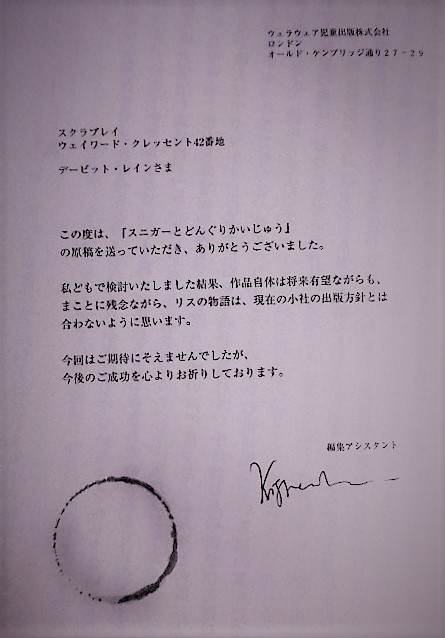 ウェラウェア児童出版株式会社
ロンドン
オールド・ケンブリッジ通り27-29
スクラブレイ
ウェイワード・クレッセント42番地
デービット・レインさま
この度は、『スニガーとどんぐりかいじゅう』
の原稿を送っていただき、ありがとうございました。
私どもで検討いたしました結果、作品自体は将来有望ながらも、
まことに残念ながら、リスの物語は、現在の小社の出版方針とは
合わないように思います。
今回はご期待にそえませんでしたが、
今後のご成功を心よりお祈りしております。
編集アシスタント